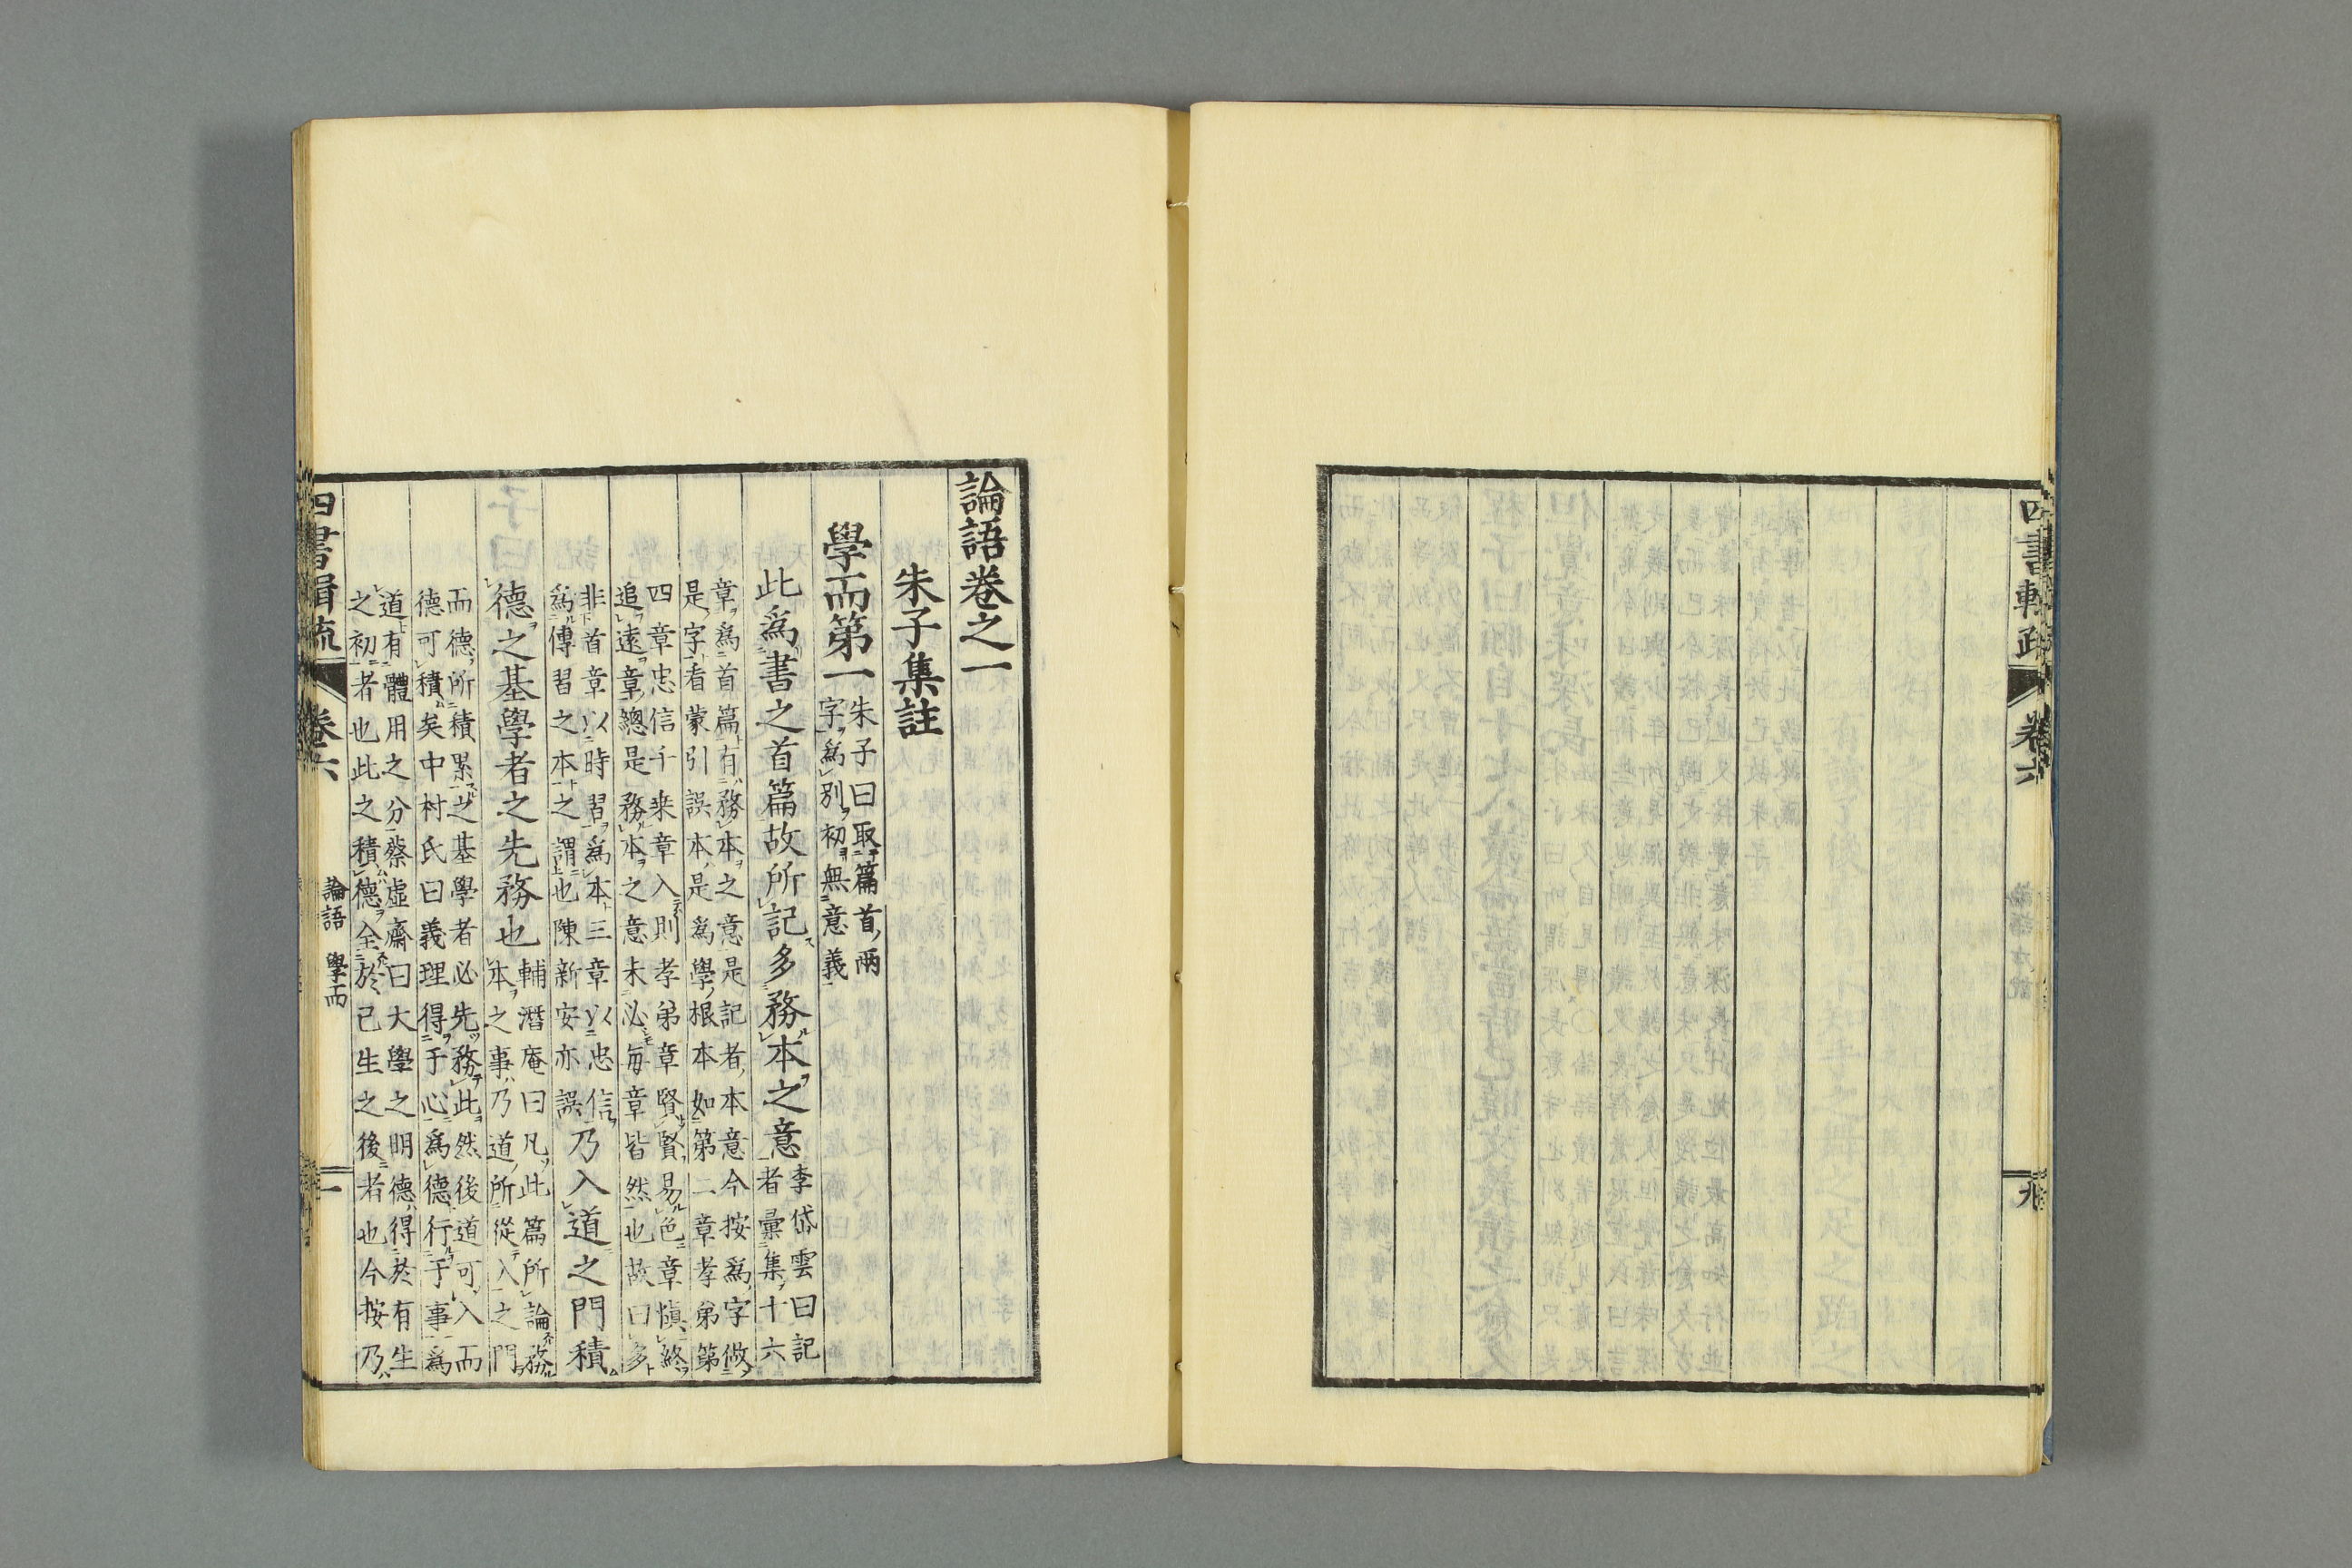 四書輯疏
卷六
九
論語卷之一
朱子集註
學而第一
朱子曰取篇首兩
字爲別初無意義
此爲書之首篇故所記多務本之意
李岱雲曰記
者彙集十六
章爲首篇有務本之意是記者本意今按爲字做
是字看蒙引誤本是爲學根本如第二章孝弟第
四章忠信千乘章入則孝弟章賢賢易色章愼終
追遠章總是務本之意未必每章皆然也故曰多
非首章以時習爲本三章以忠信
爲傳習之本之謂也陳新安亦誤
乃入道之門積
德之基學者之先務也
輔潛庵曰凡此篇所論務
本之事乃道所從入之門
而德所積累之基學者必先務此然後道可入而
德可積矣中村氏曰義理得于心爲德行于事爲
道有體用之分蔡虛齋曰大學之明德得於有生
之初者也此之積德全於已生之後者也今按乃
四書輯疏
卷六
論語 學而
一